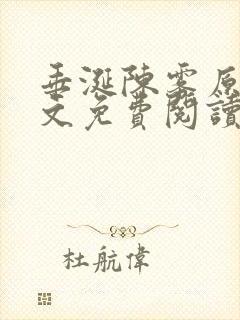 垂涎陳雾原
文免費閱讀
杜航偉